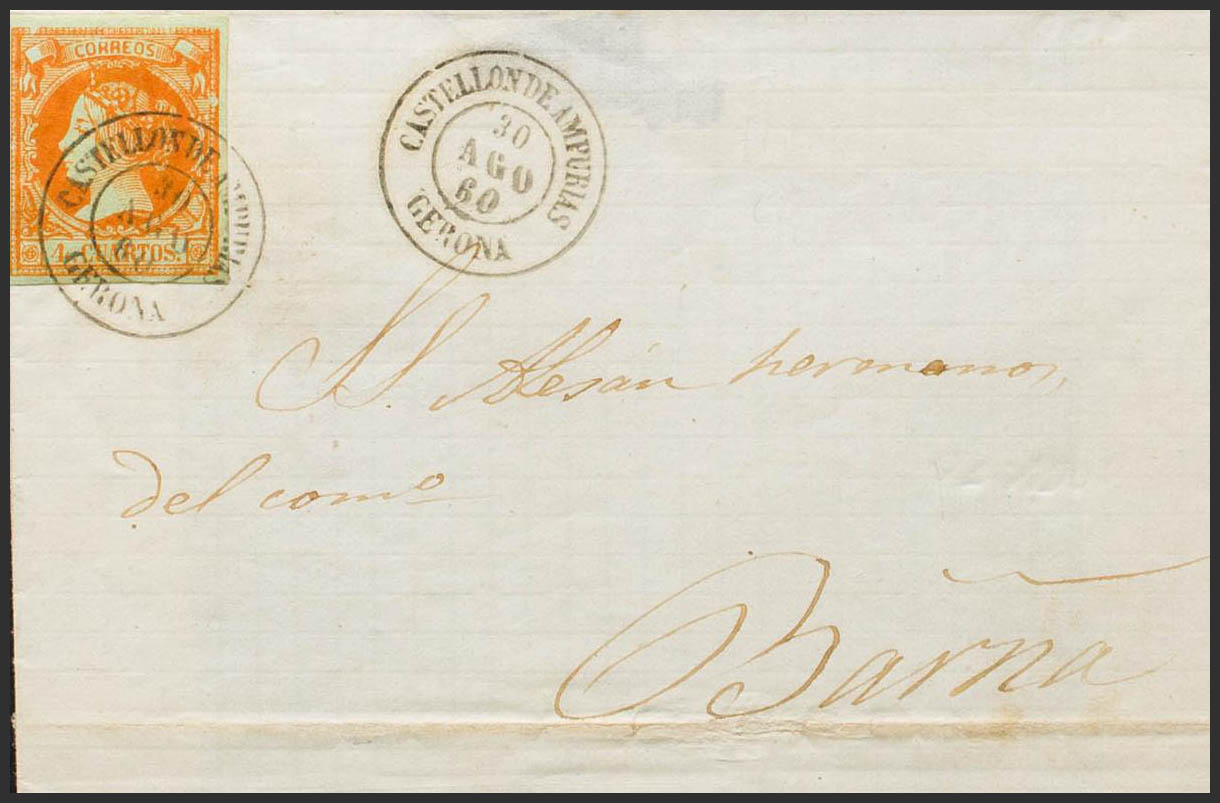 CORREOS
4 CUARTOS.
CASTELLON DE AMPURIAS
30
AGO
60
GERONA
CASTELLON DE AMPURIAS
30
AGO
60
GERONA
S. S. Alesán hermanos,
del como
Barña